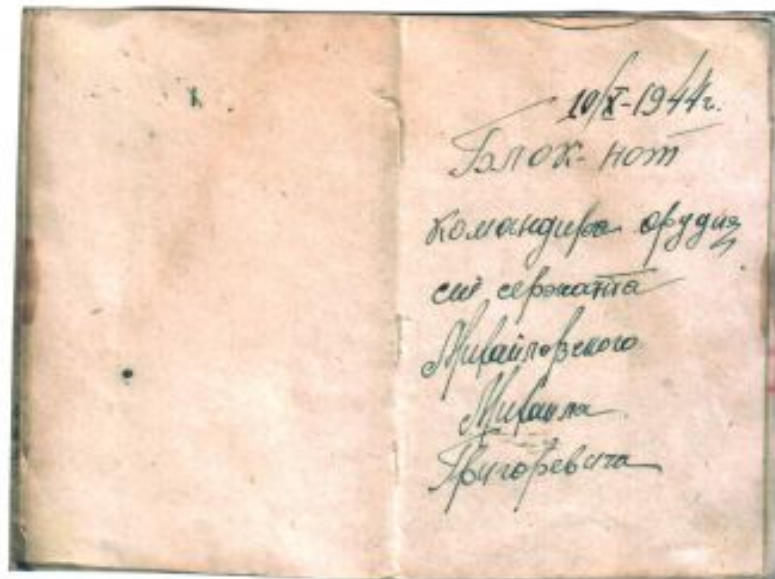 10/X-1944г.
Блок-нот
командира орудия
ст сержанта
Михайловского
Михаила
Григорьевича